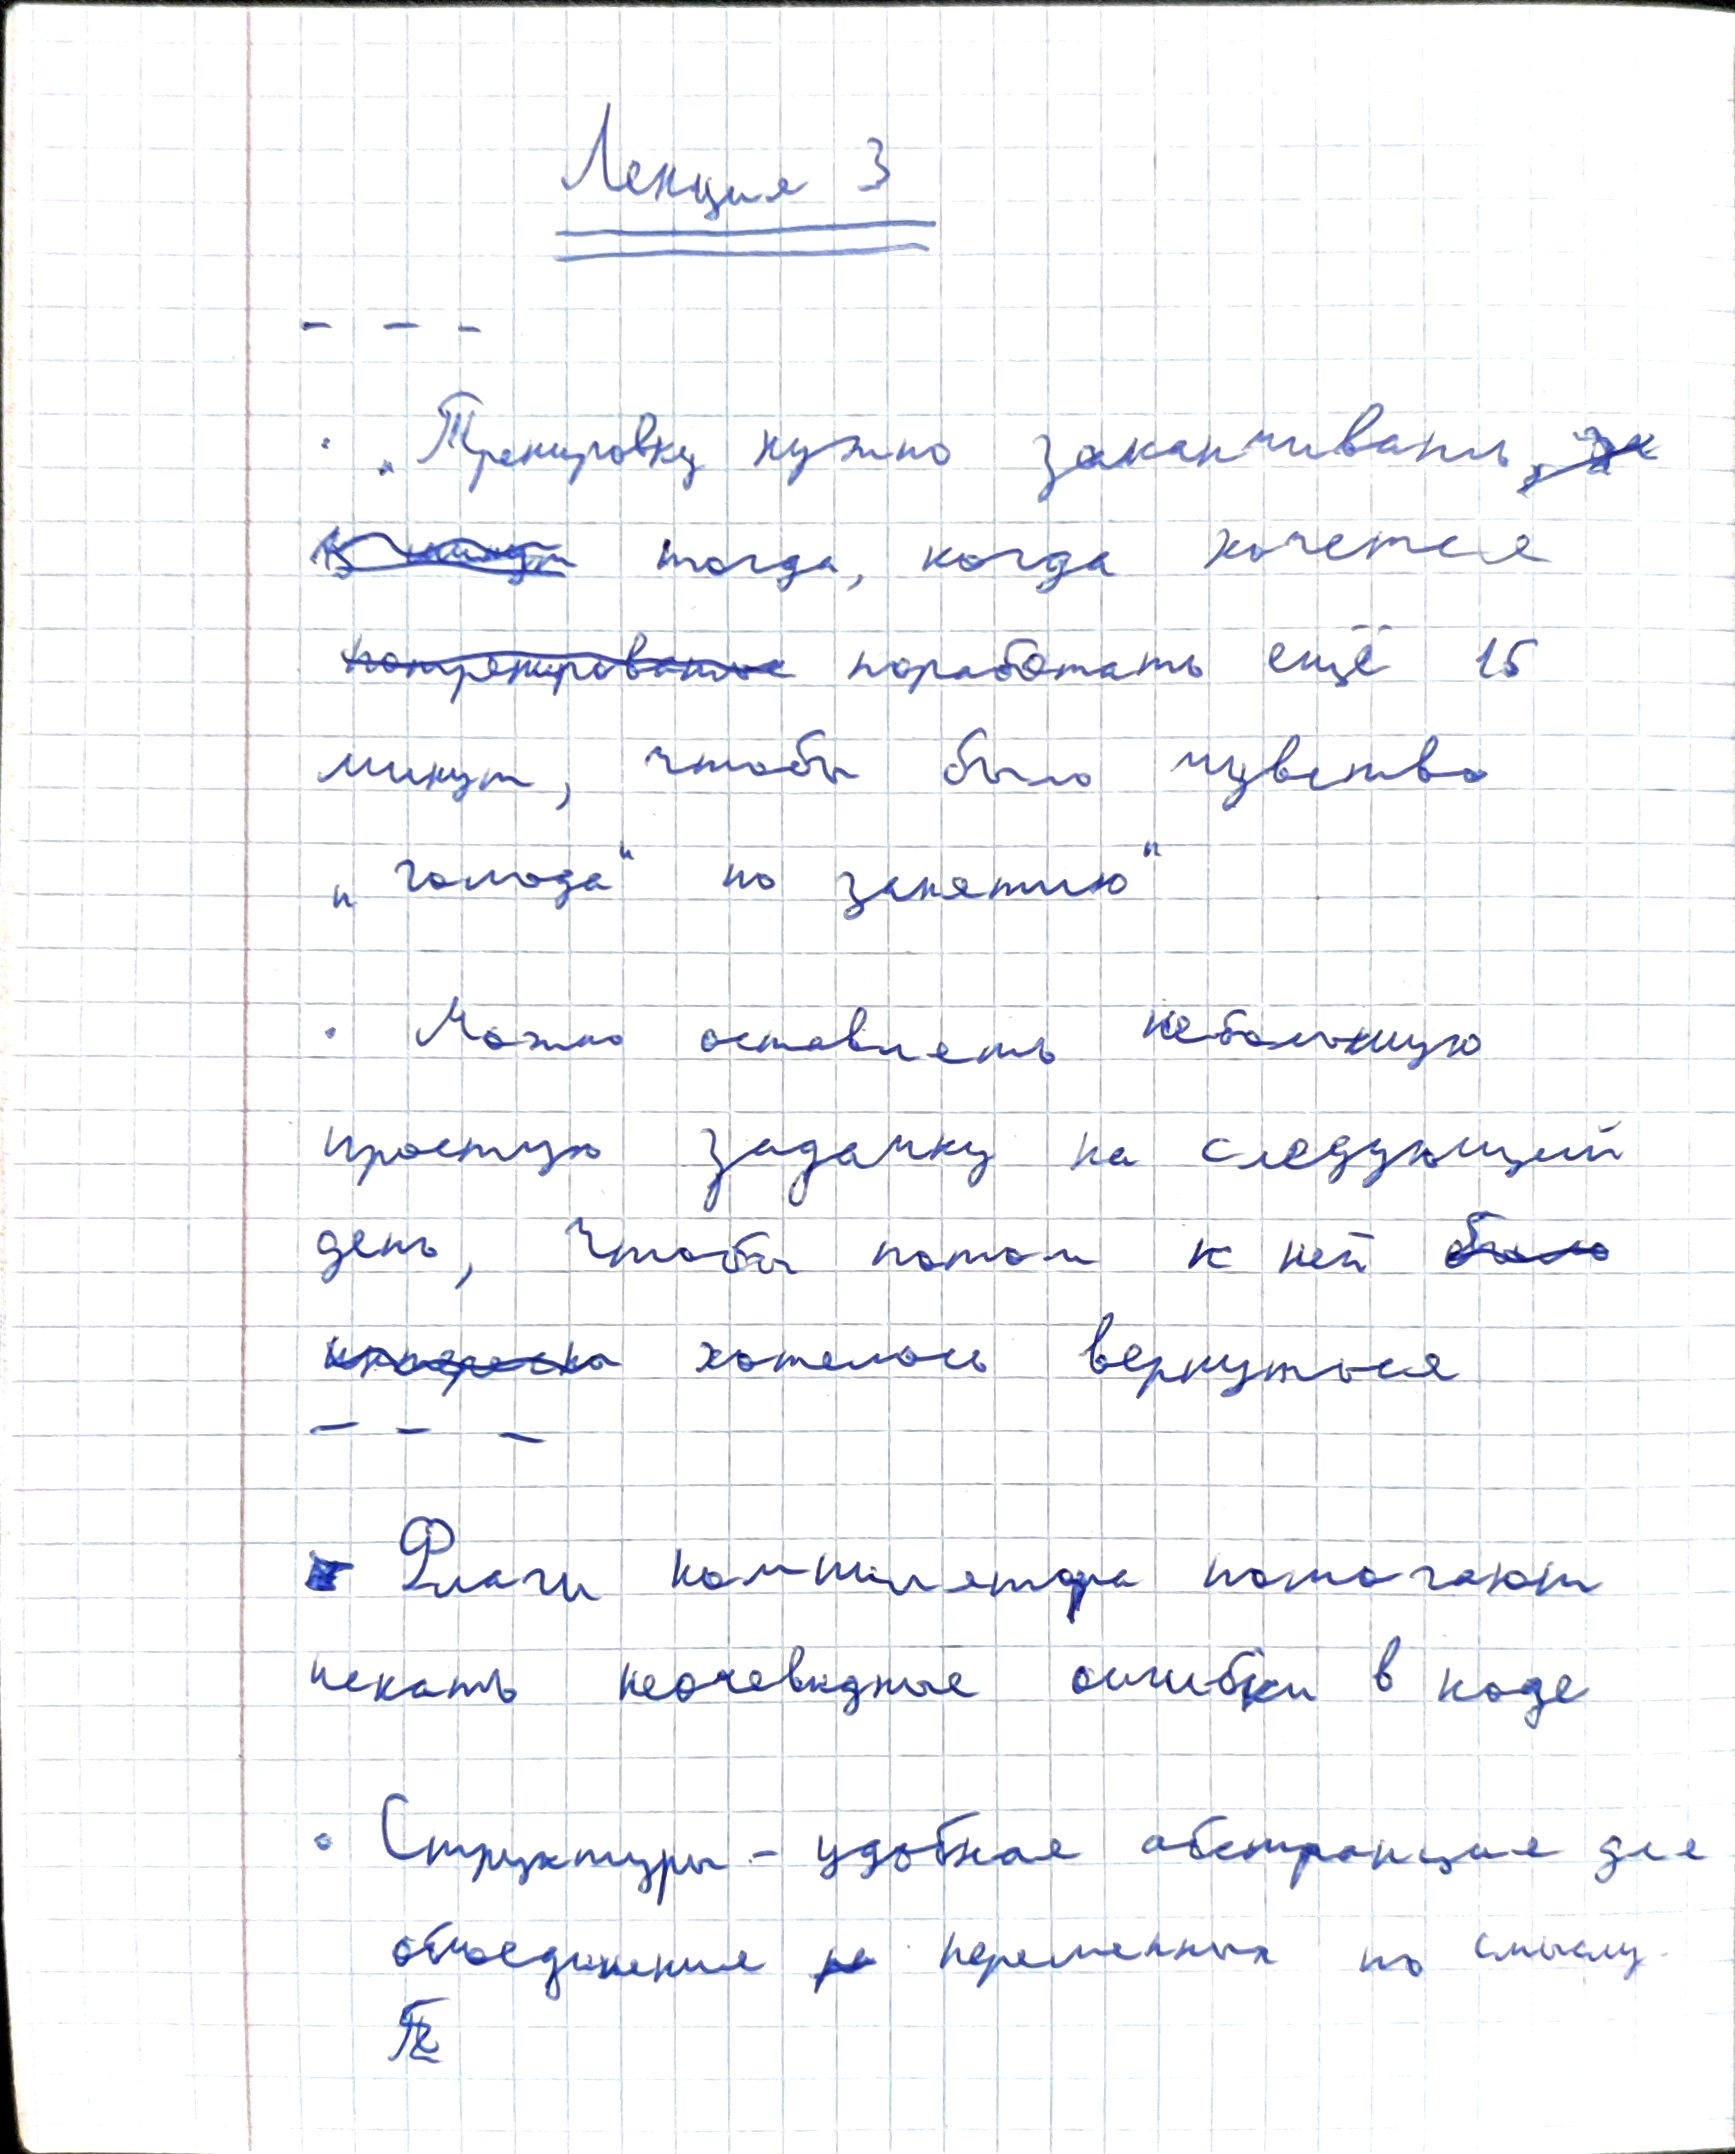 Лекция 3
- - -
· „Тренировку нужно заканчивать
тогда, когда хочется
потренироваться поработать ещё 15
минут, чтобы было чувство
„голода“ по занятию“
· Можно оставлять небольшую
простую задачку на следующий
день, чтобы потом к ней было
хотелось вернуться
- - -
Флаги компилятора помогают
искать неочевидные ошибки в коде
· Структуры - удобная абстракция для
объединения переменных по смыслу.